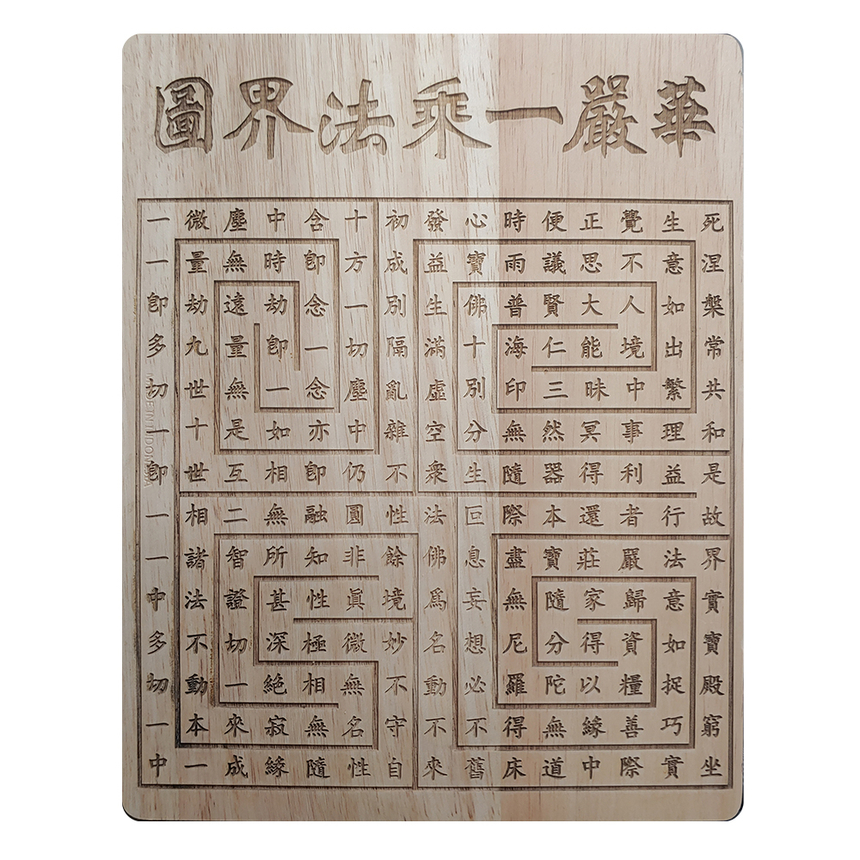 華嚴一乘法界圖
一微塵中含十初發心時便正覺生死
一量無時卽方成益寶雨議思不意涅
卽劫遠劫念一別生佛普賢大人如槃
多九量卽一切隔滿十海仁能境出常
切世無一念塵亂虛別印三昧中繁共
一十是如亦中雜空分無然冥事理和
卽世互相卽仍不衆生隨器得利益是
一相二無融圓性法叵際本還者行故
一諸智所知非餘佛息盡寶莊嚴法界
中法證甚性眞境爲妄無隨家歸意實
多不切深極微妙名想尼分得資如寶
切動一絶相無不動必羅陀以糧捉殿
一本來寂無名守不不得無緣善巧窮
中一成緣隨性自來舊床道中際實坐